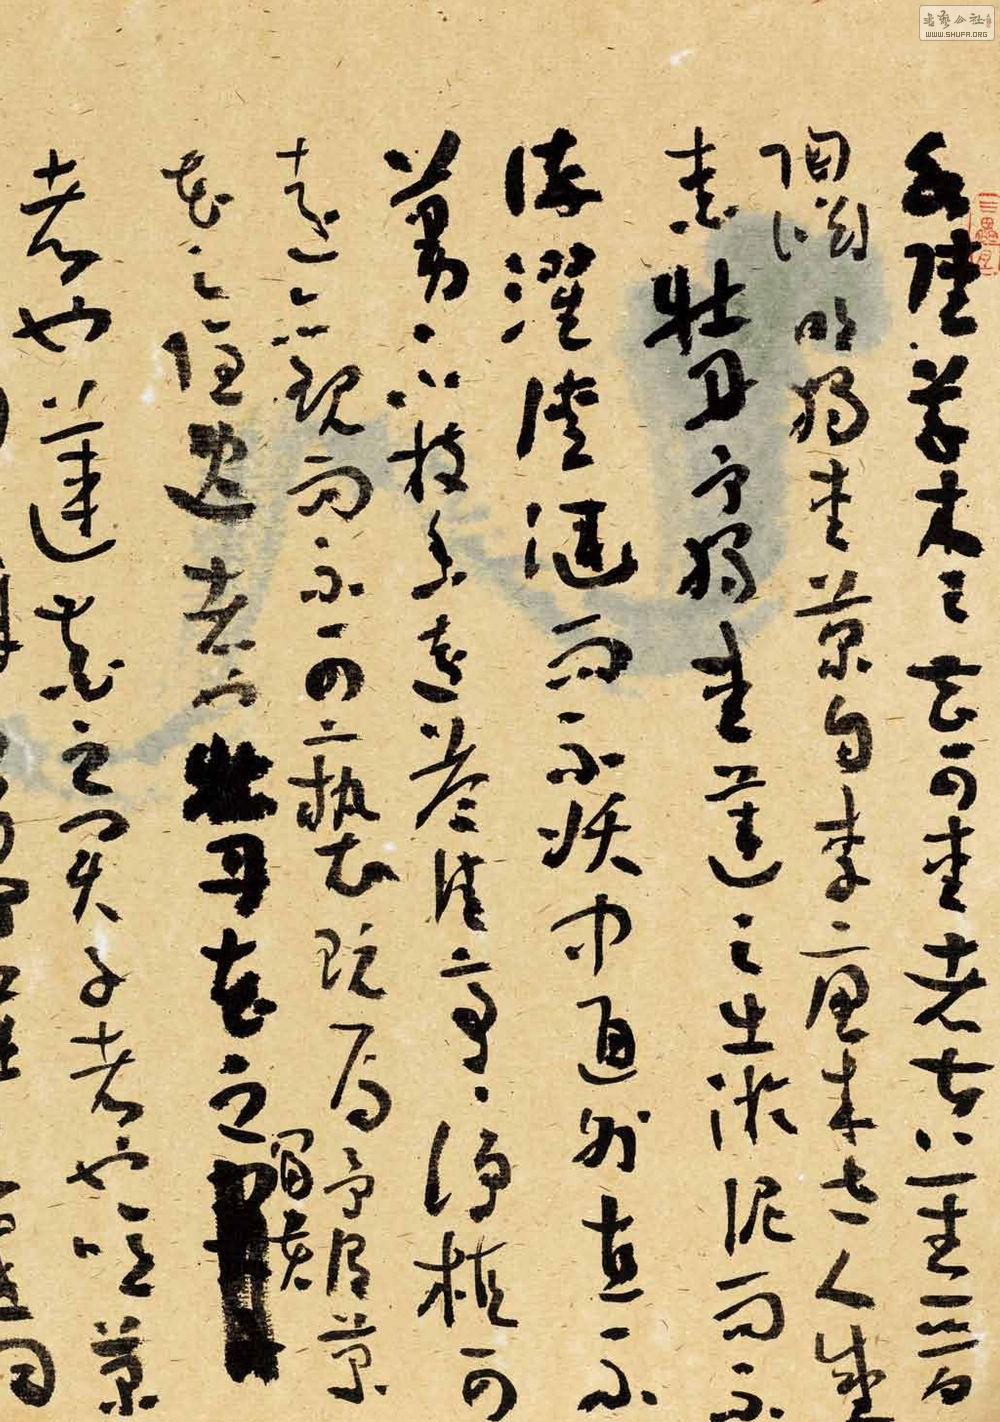 水陸草木之花可愛者甚蕃晉
陶淵明獨愛菊自李唐來世人盛
愛牡丹予獨愛蓮之出淤泥而不
染濯清漣而不妖中通外直不
蔓不枝香遠益清亭亭淨植可
遠觀而不可褻玩焉予謂菊
花之隱逸者也牡丹花之富貴
者也蓮花之君子者也噫菊
同
书艺公社
WWW.SHUFA.ORG